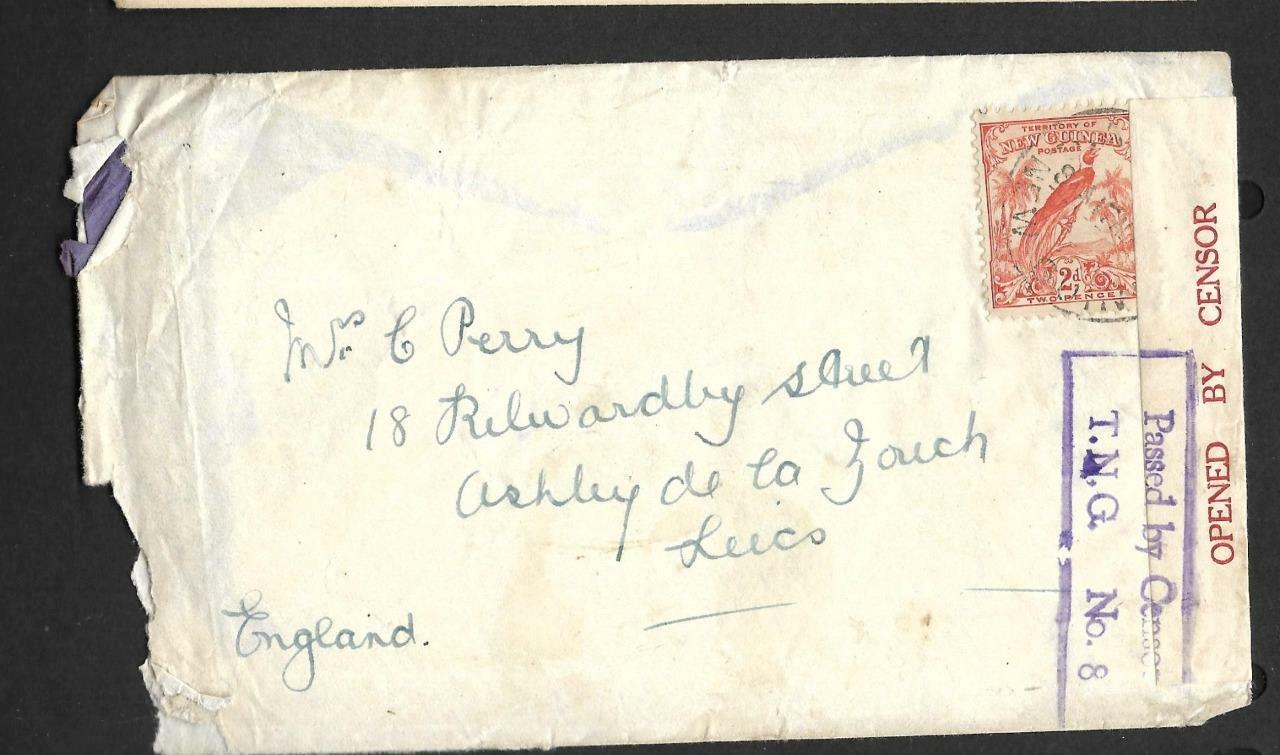 TERRITORY OF
NEW GUINEA
POSTAGE
2d
TWO PENCE
Mrs C Perry
18 Kilwardby street
Ashby de la Zouch
Leics
England.
Passed by Censor
T.N.G. No. 8
OPENED BY CENSOR